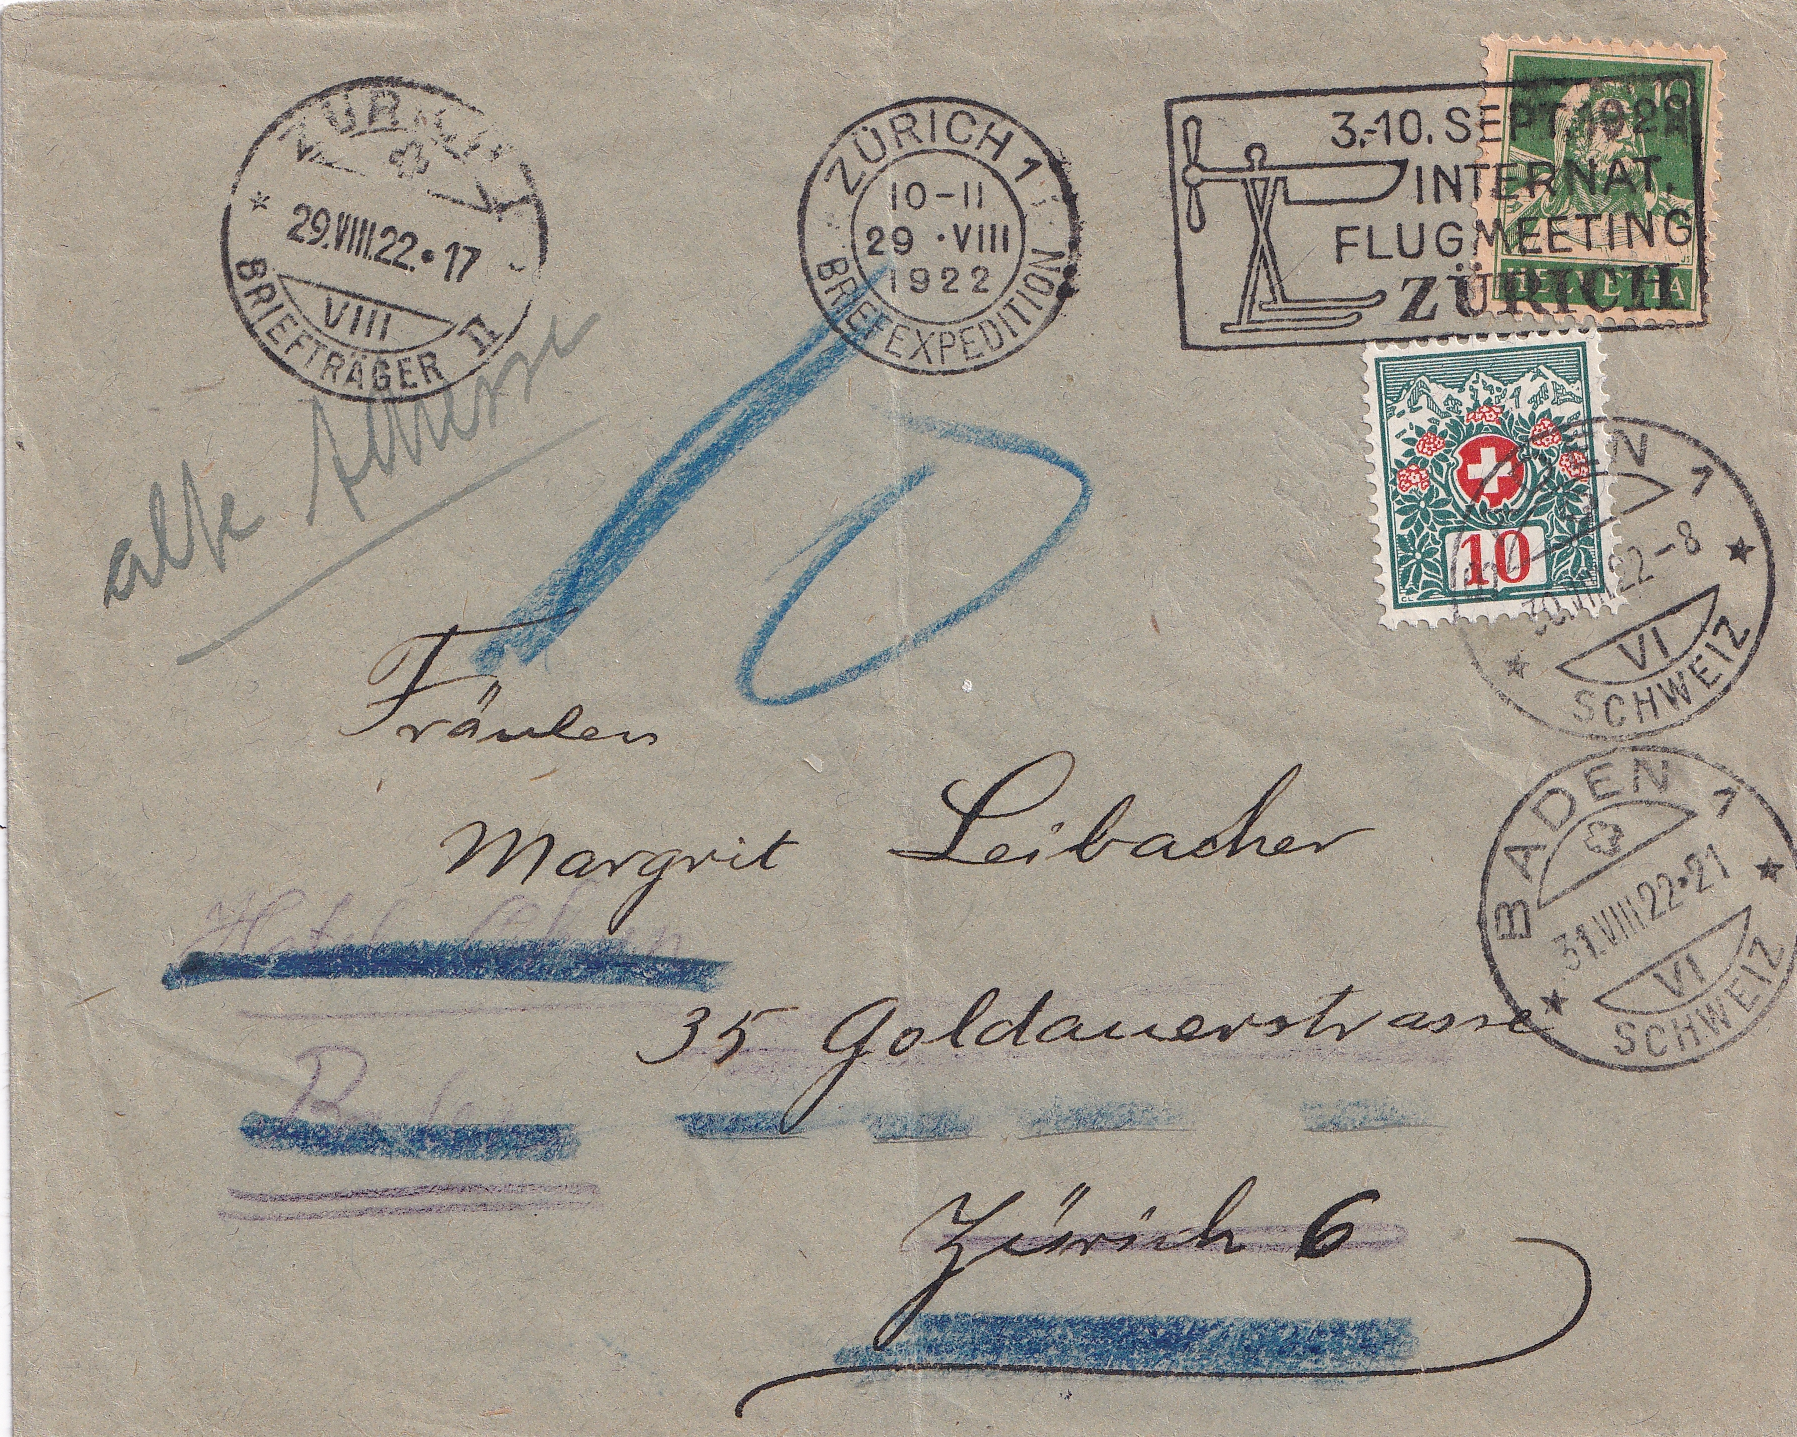 ZÜRICH 1
29.VIII.22.•17
VIII
BRIEFTRÄGER II
ZÜRICH 1
10–11
29 •VIII
1922
BRIEFEXPEDITION
3.-10. SEPT. 1922
INTERNAT.
FLUGMEETING
ZÜRICH
10
HELVETIA
10
BADEN 1
30.VIII.22–8
VI
SCHWEIZ
alte Adresse
10
Fräulein
Margrit Leibacher
Hotel
35 Goldauerstrasse
Baden
Zürich 6
BADEN 1
31.VIII.22•21
VI
SCHWEIZ